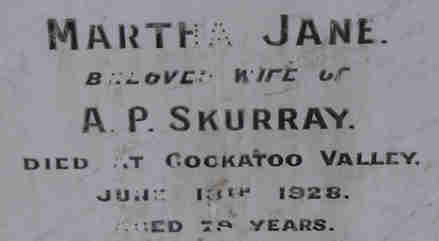 MARTHA JANE.
BELOVED WIFE OF
A. P. SKURRAY.
DIED AT COCKATOO VALLEY,
JUNE 13TH 1928.
AGED 79 YEARS.